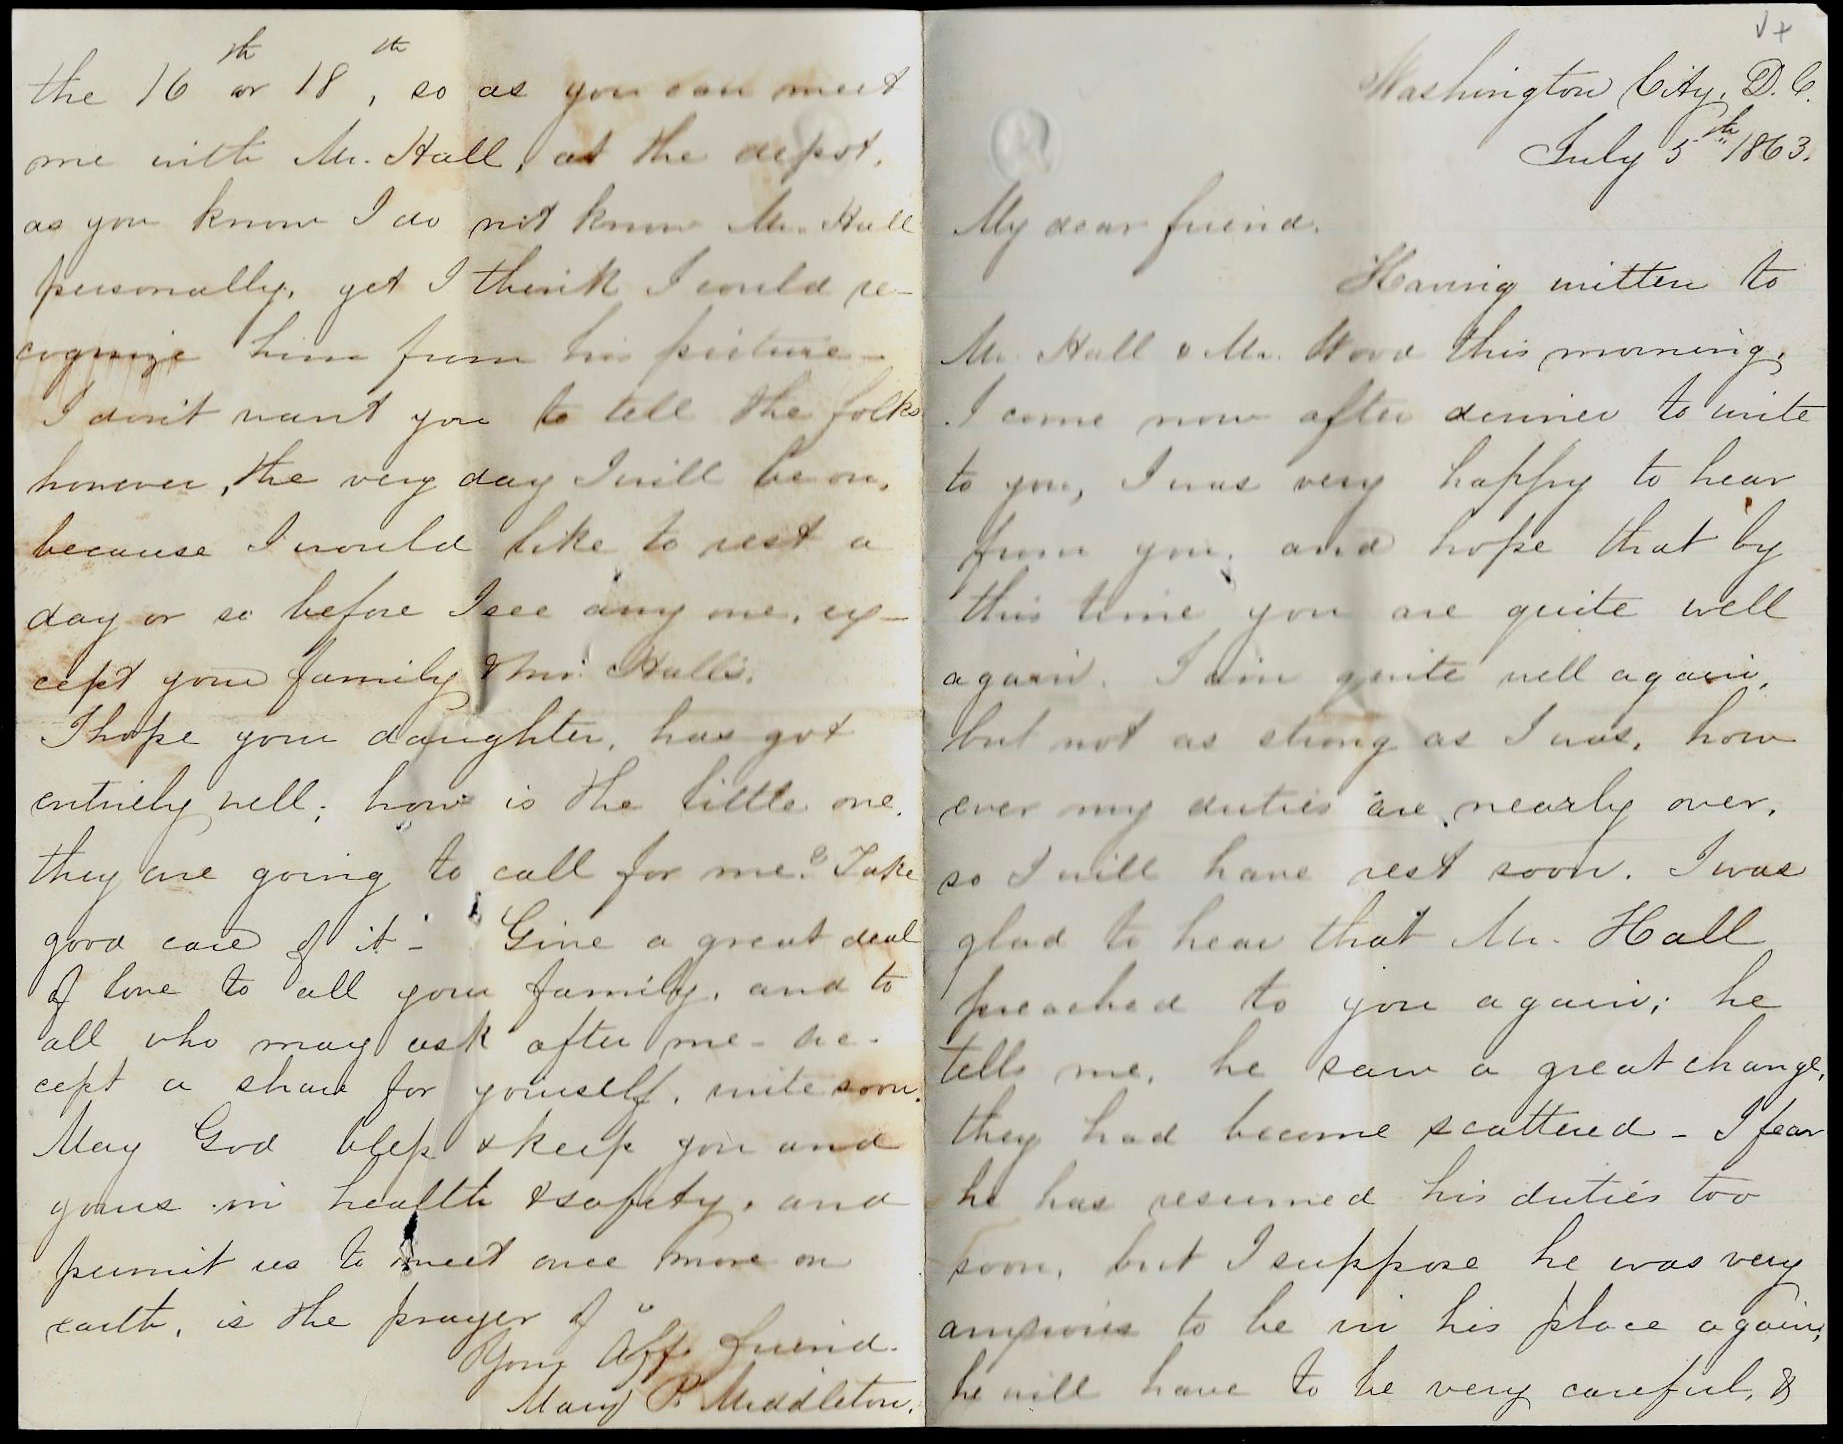 Washington City, D.C.
July 5th 1863.
My dear friend.
Having written to
Mr. Hall & Mr. Wood this morning,
I come now after dinner to write
to you, I was very happy to hear
from you, and hope that by
this time you are quite well
again. I am quite well again,
but not as strong as I was, how
ever my duties are nearly over,
so I will have rest soon. I was
glad to hear that Mr. Hall
preached to you again; he
tells me, he saw a great change,
they had become scattered - I fear
he has resumed his duties too
soon, but I suppose he was very
anxious to be in his place again,
he will have to be very careful, &
the 16th or 18th, so as you can meet
me with Mr. Hall, at the depot,
as you know I do not know Mr. Hall
personally, yet I think I could re-
cognize him from his picture -
I don't want you to tell the folks
however, the very day I will be on,
because I would like to rest a
day or so before I see any one, ex-
cept your family & Mr. Hall's.
I hope your daughter, has got
entirely well; how is the little one,
they are going to call for me? Take
good care of it - Give a great deal
of love to all your family, and to
all who may ask after me - ac-
cept a share for yourself, write soon.
May God bless & keep you and
yours in health & safety, and
permit us to meet once more on
earth, is the prayer of
Your Aff. friend.
Mary P. Middleton.